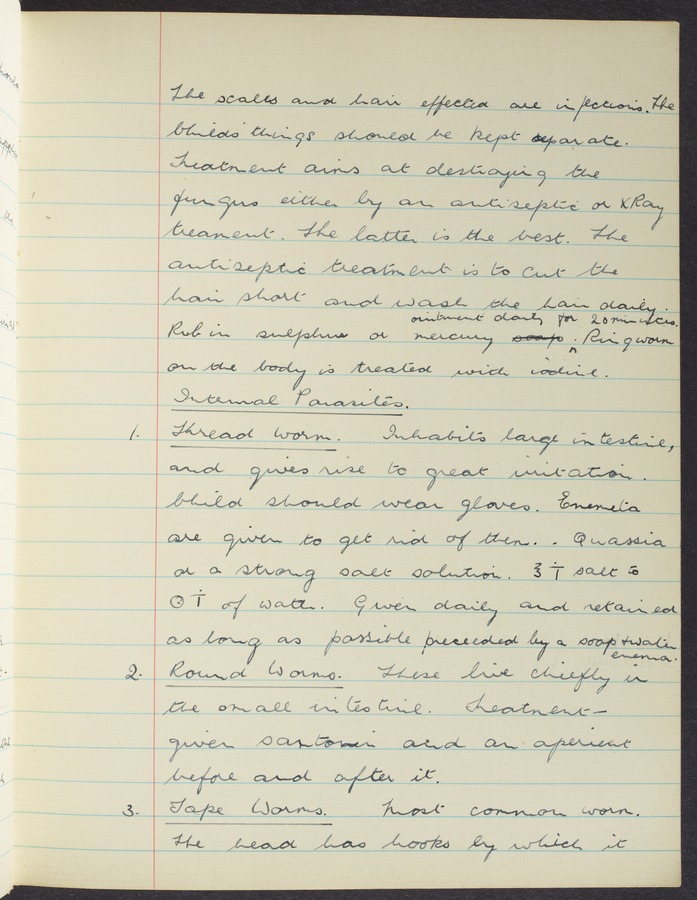 The scales and hair effected are infectious. The
Childs' things should be kept separate.
Treatment aims at destroying the
fungus either by an antiseptic or XRay
treament. The latter is the best. The
antiseptic treatment is to cut the
hair short and wash the hair daily.
ointment daily for 20 minutes.
Rub in sulphur or mercury soap. Ringworm
on the body is treated with iodine.
Internal Parasites.
1. Thread worm. Inhabits large intestine,
and gives rise to great irritation.
Child should wear gloves. Enemeta
are given to get rid of them.. Quassia
or a strong salt solution. ℥ṫ salt to
Oṫ of water. Given daily and retained
as long as possible preceeded by a soap + water
enema.
2. Round Worms. These live chiefly in
the small intestine. Treatment—
given santonin and an aperient
before and after it.
3. Tape Worms. Most common worm.
The head has hooks by which it